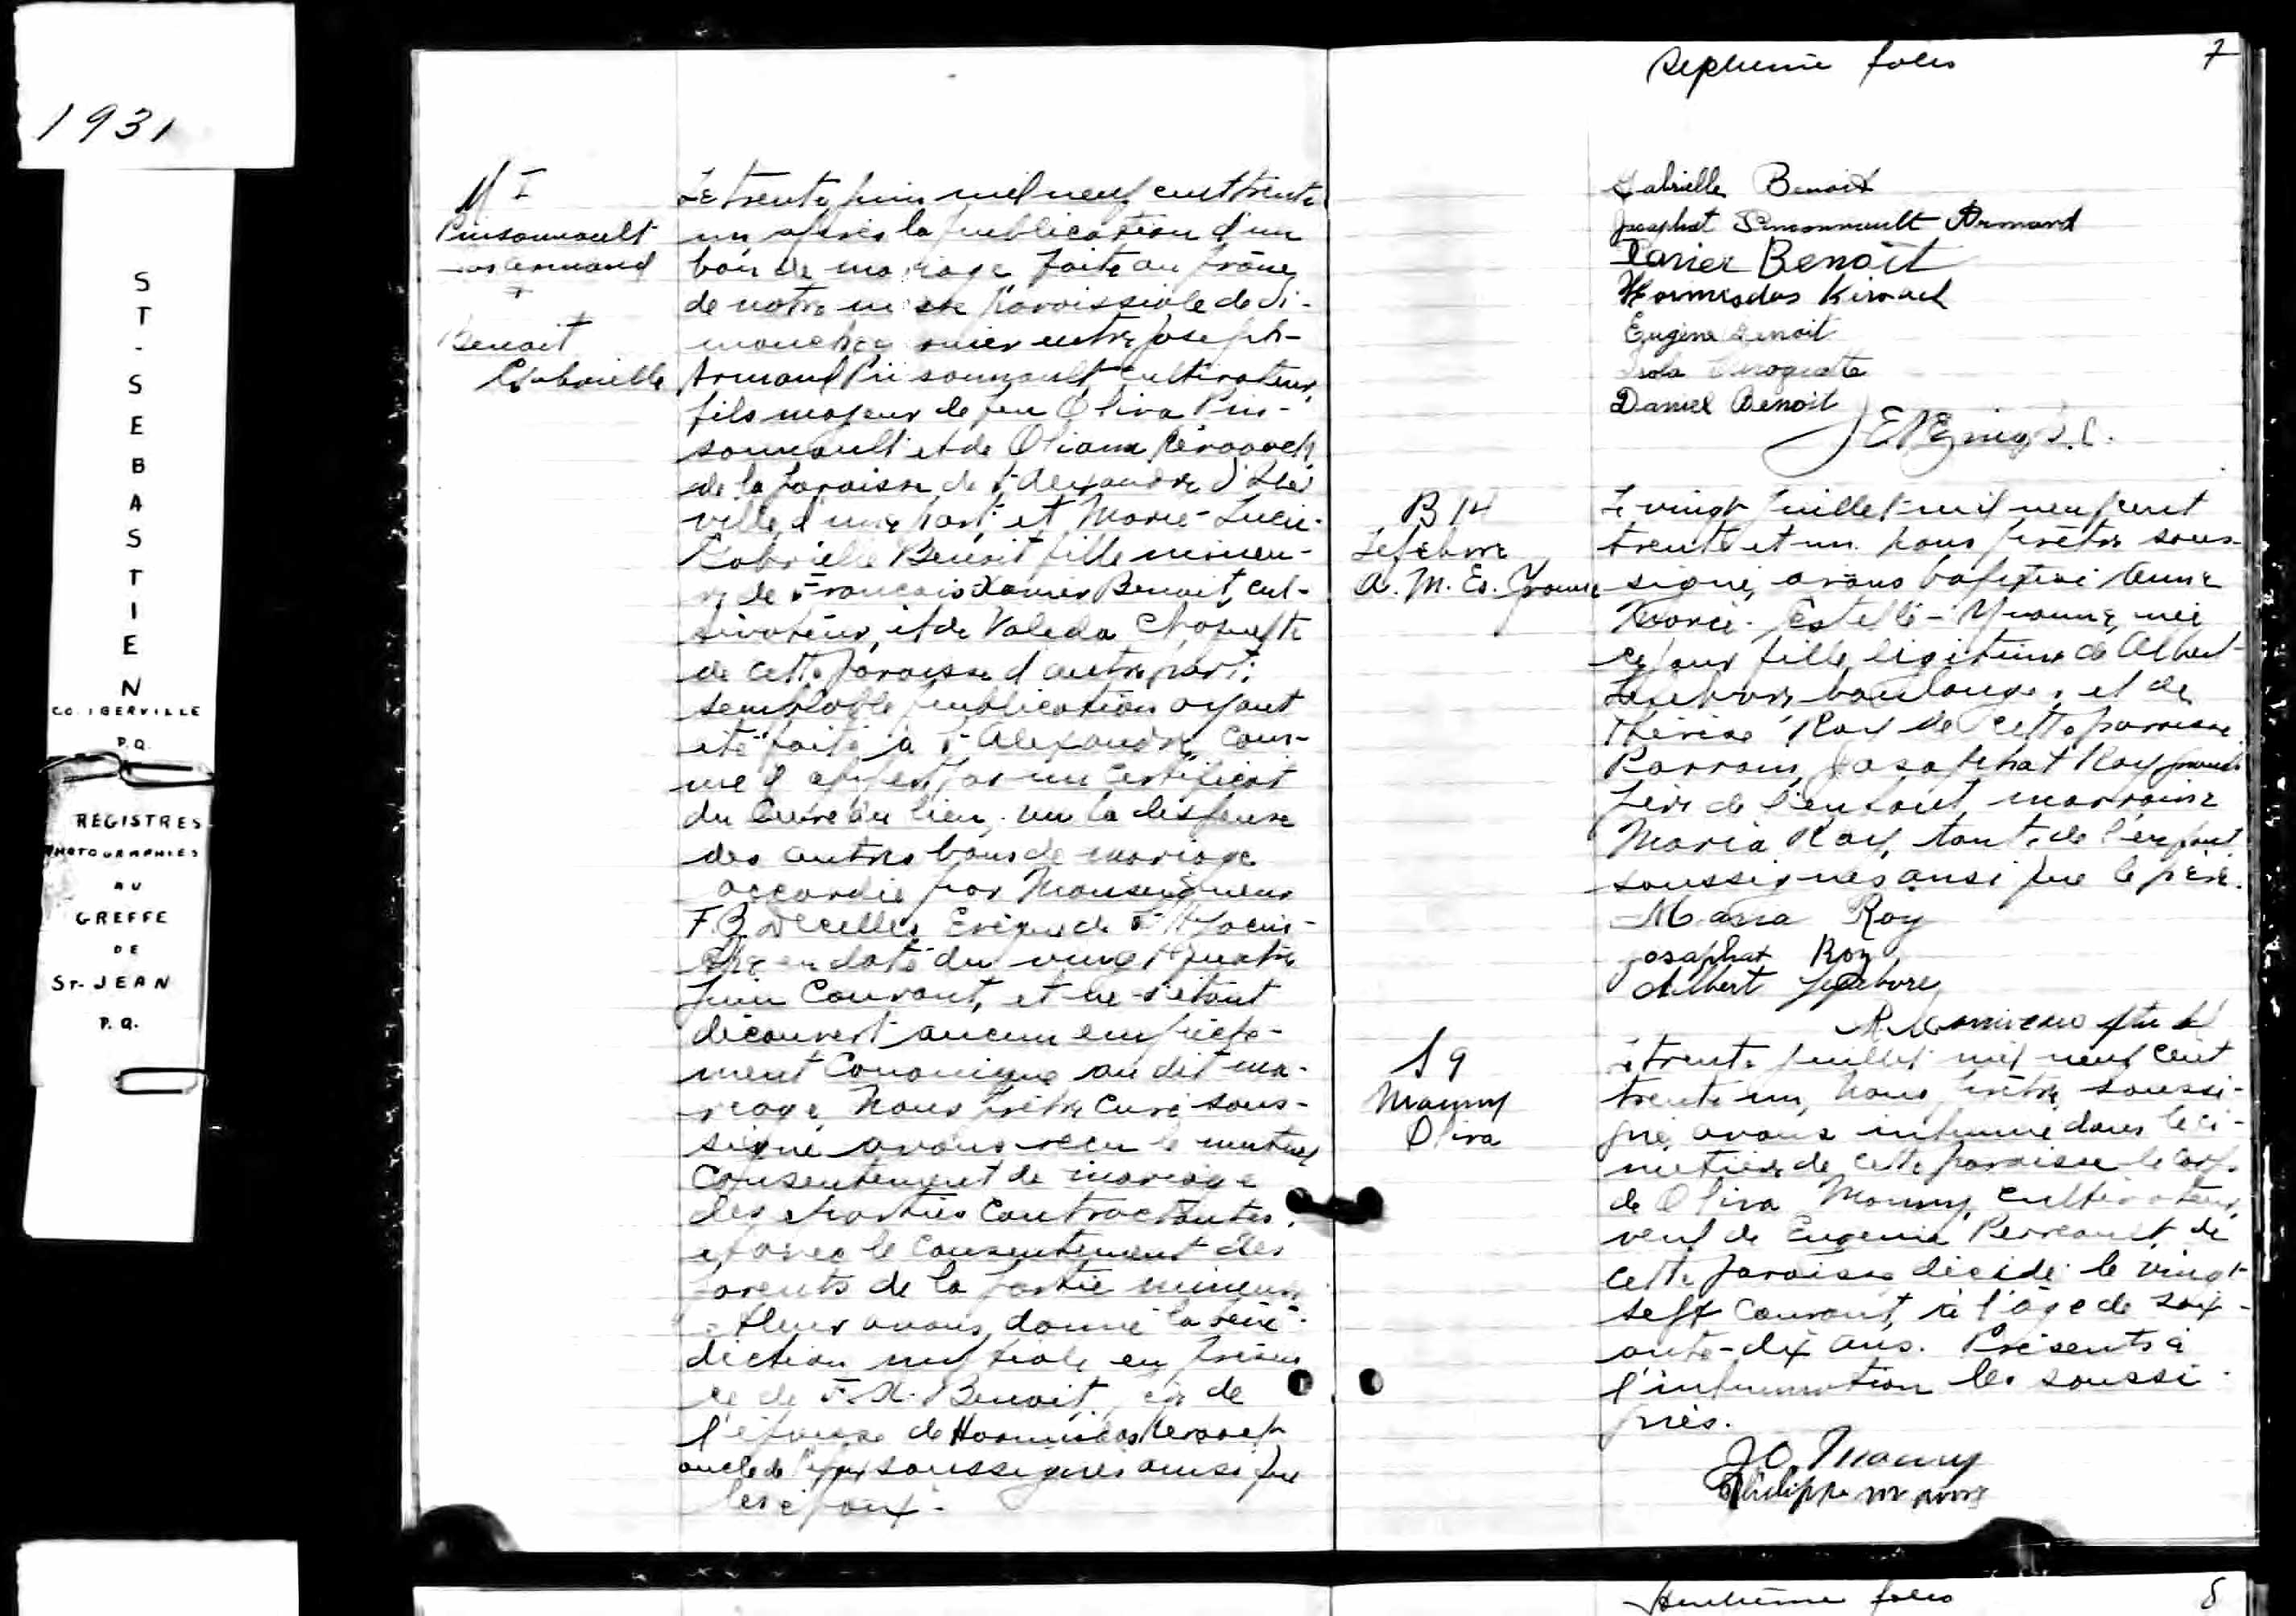 1931
ST-SEBASTIEN
CO. IBERVILLE
P.Q.
REGISTRES
PHOTOGRAPHIES
AU
GREFFE
DE
ST-JEAN
P.Q.
M I
Pinsonnault
Jos Armand
+
Benoit
Gabrielle
Le trente juin mil neuf cent trente
un après la publication d'un
ban de mariage faite au prône
de notre messe paroissiale de di-
manche dernier entre Joseph-
Armand Pinsonnault cultivateur,
fils majeur de feu Oliva Pin-
sonnault et de Oliana Kérouack
de la paroisse de St-Alexandre d'Iber
ville d'une part et Marie-Lucie-
Gabrielle Benoit fille mineu-
re de François Xavier Benoit, cul-
tivateur, et de Valeda Choquette
de cette paroisse d'autre part;
semblable publication ayant
été faite à St-Alexandre, com-
me il appert par un certificat
du Curé du lieu, vu la dispense
des autres bans de mariage
accordée par Monseigneur
F. Z. Decelles Evêque de St-Hyacin-
the en date du vingt quatre
Juin Courant, et ne s'étant
découvert aucun empêche-
ment Canonique au dit ma-
riage, Nous prêtre Curé sous-
signé avons reçu le mutuel
Consentement de mariage
des parties Contractantes,
et avec le Consentement des
parents de la partie mineure
et leur avons donné la béné-
diction nuptiale en présen
ce de F. X. Benoit, père de
l'épouse de Hormisdas Kerouack
oncle de l'époux soussignés ainsi que
les époux.
Septième folio 7
Gabrielle Benoit
Josaphat Pinsonnault Armand
Xavier Benoît
Hormisdas Kirouack
Eugène Benoit
Choquette
Daniel Benoit
B 14
Lefebvre
A. M. Es. Yvonne
Le vingt Juillet mil neuf cent
trente et un nous prêtre sous-
signé, avons baptisé Anne
Marie-Estelle-Yvonne, née
ce jour fille légitime de Albert
Lefebvre, boulanger, et de
Thérèse Roy de cette paroisse.
Parrain, Josaphat Roy grand
père de l'enfant, marraine
Maria Roy, tante de l'enfant
soussignés ainsi que le père.
Maria Roy
Josaphat Roy
Albert Lefebvre
S 9
Mauny
Oliva
Le trente juillet mil neuf cent
trente un, Nous prêtre soussi-
gné, avons inhumé dans le ci-
metière de cette paroisse le corps
de Oliva Mauny, cultivateur,
veuf de Eugenie Perreault de
cette paroisse décédé le vingt
sept Courant, à l'âge de soix-
ante-dix ans. Présents à
l'inhumation les soussi-
gnés.
J O Mauny
Philippe
Huitième folio 8